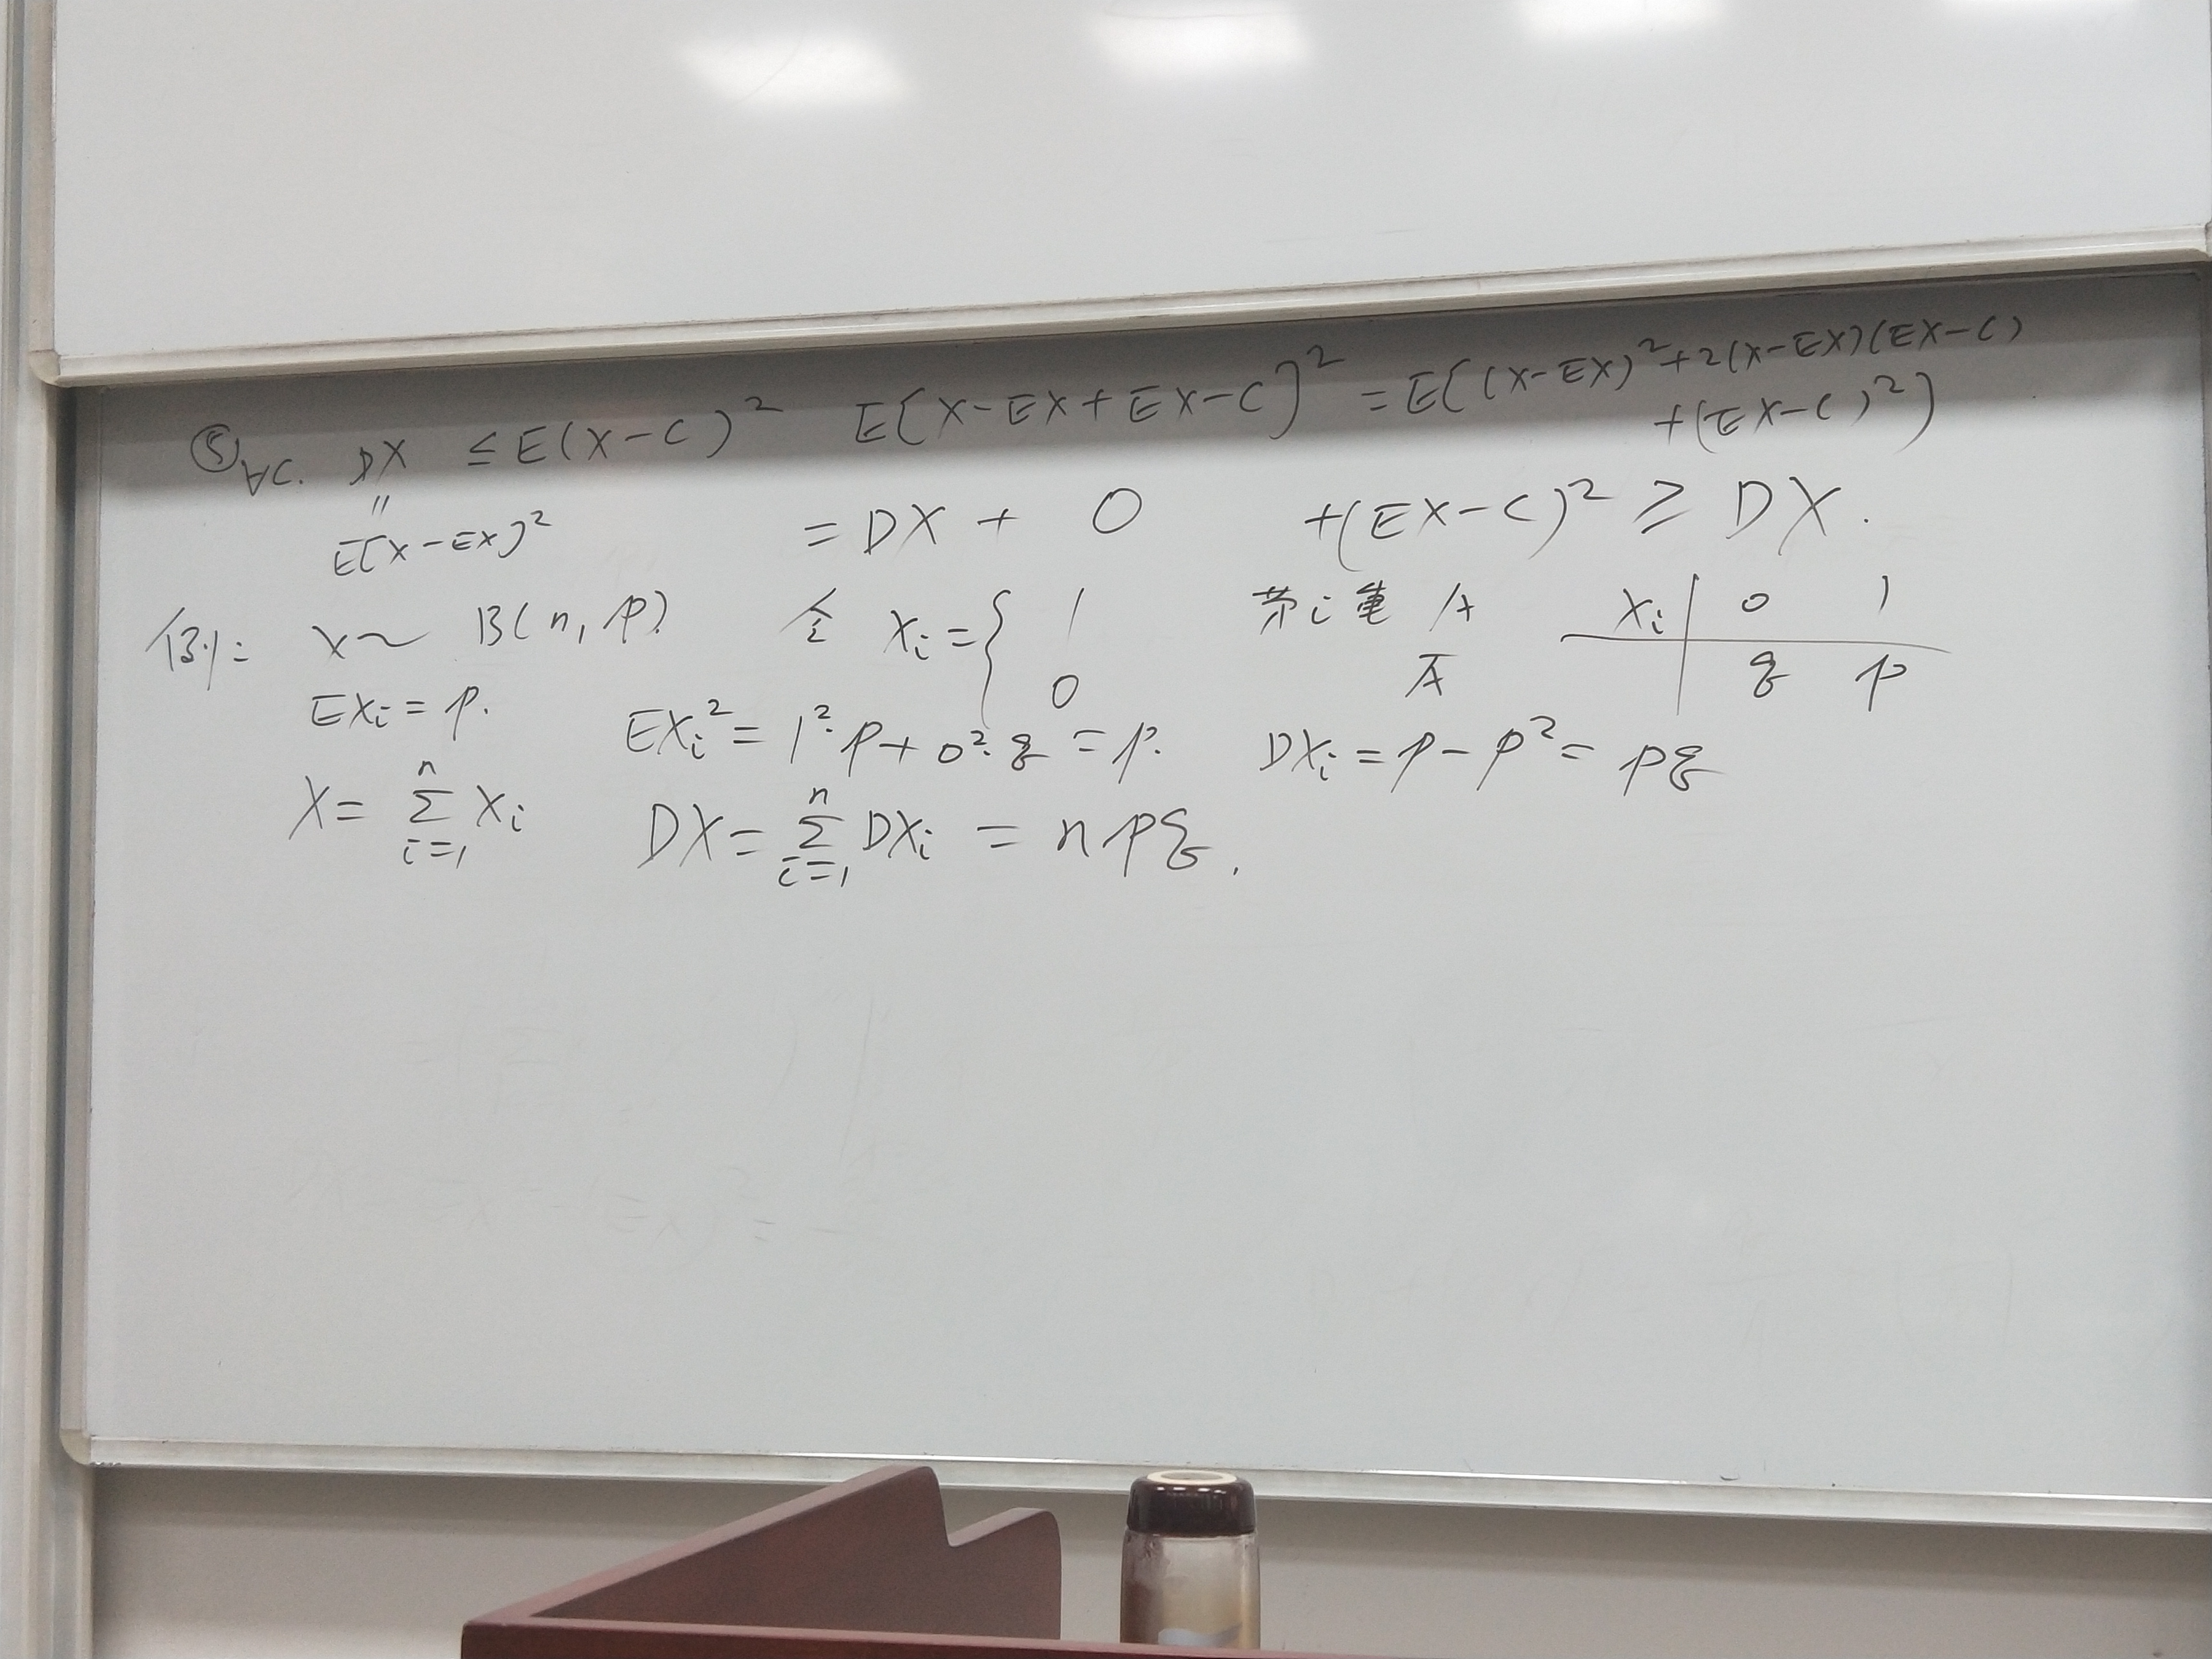 ⑤ ∀C. DX ≤ E(X-C)² E[X-EX+EX-C]² = E[(X-EX)²+2(X-EX)(EX-C)
+(EX-C)²]
"
E[X-EX]² = DX + 0 +(EX-C)² ≥ DX.
例: X~ B(n, p). 令 Xi = { 1 第i重 A Xi | 0 1
0 Ā q p
EXi = p. EXi² = 1²·p + 0²·q = p. DXi = p - p² = pq
X = Σ_{i=1}^{n} Xi DX = Σ_{i=1}^{n} DXi = npq.